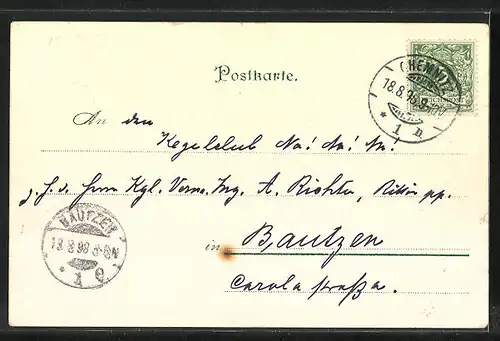 Postkarte.
CHEMNITZ
18.8.98.8-9N
* 1 n
REICHSPOST
An den
Kegelclub Na! Na! Na!
z. H. d. Herrn Kgl. Verm. Ing. A. Richter, Ritter pp.
BAUTZEN
18 8 98 8-9N
* 1 e
in Bautzen
Carolastraße.